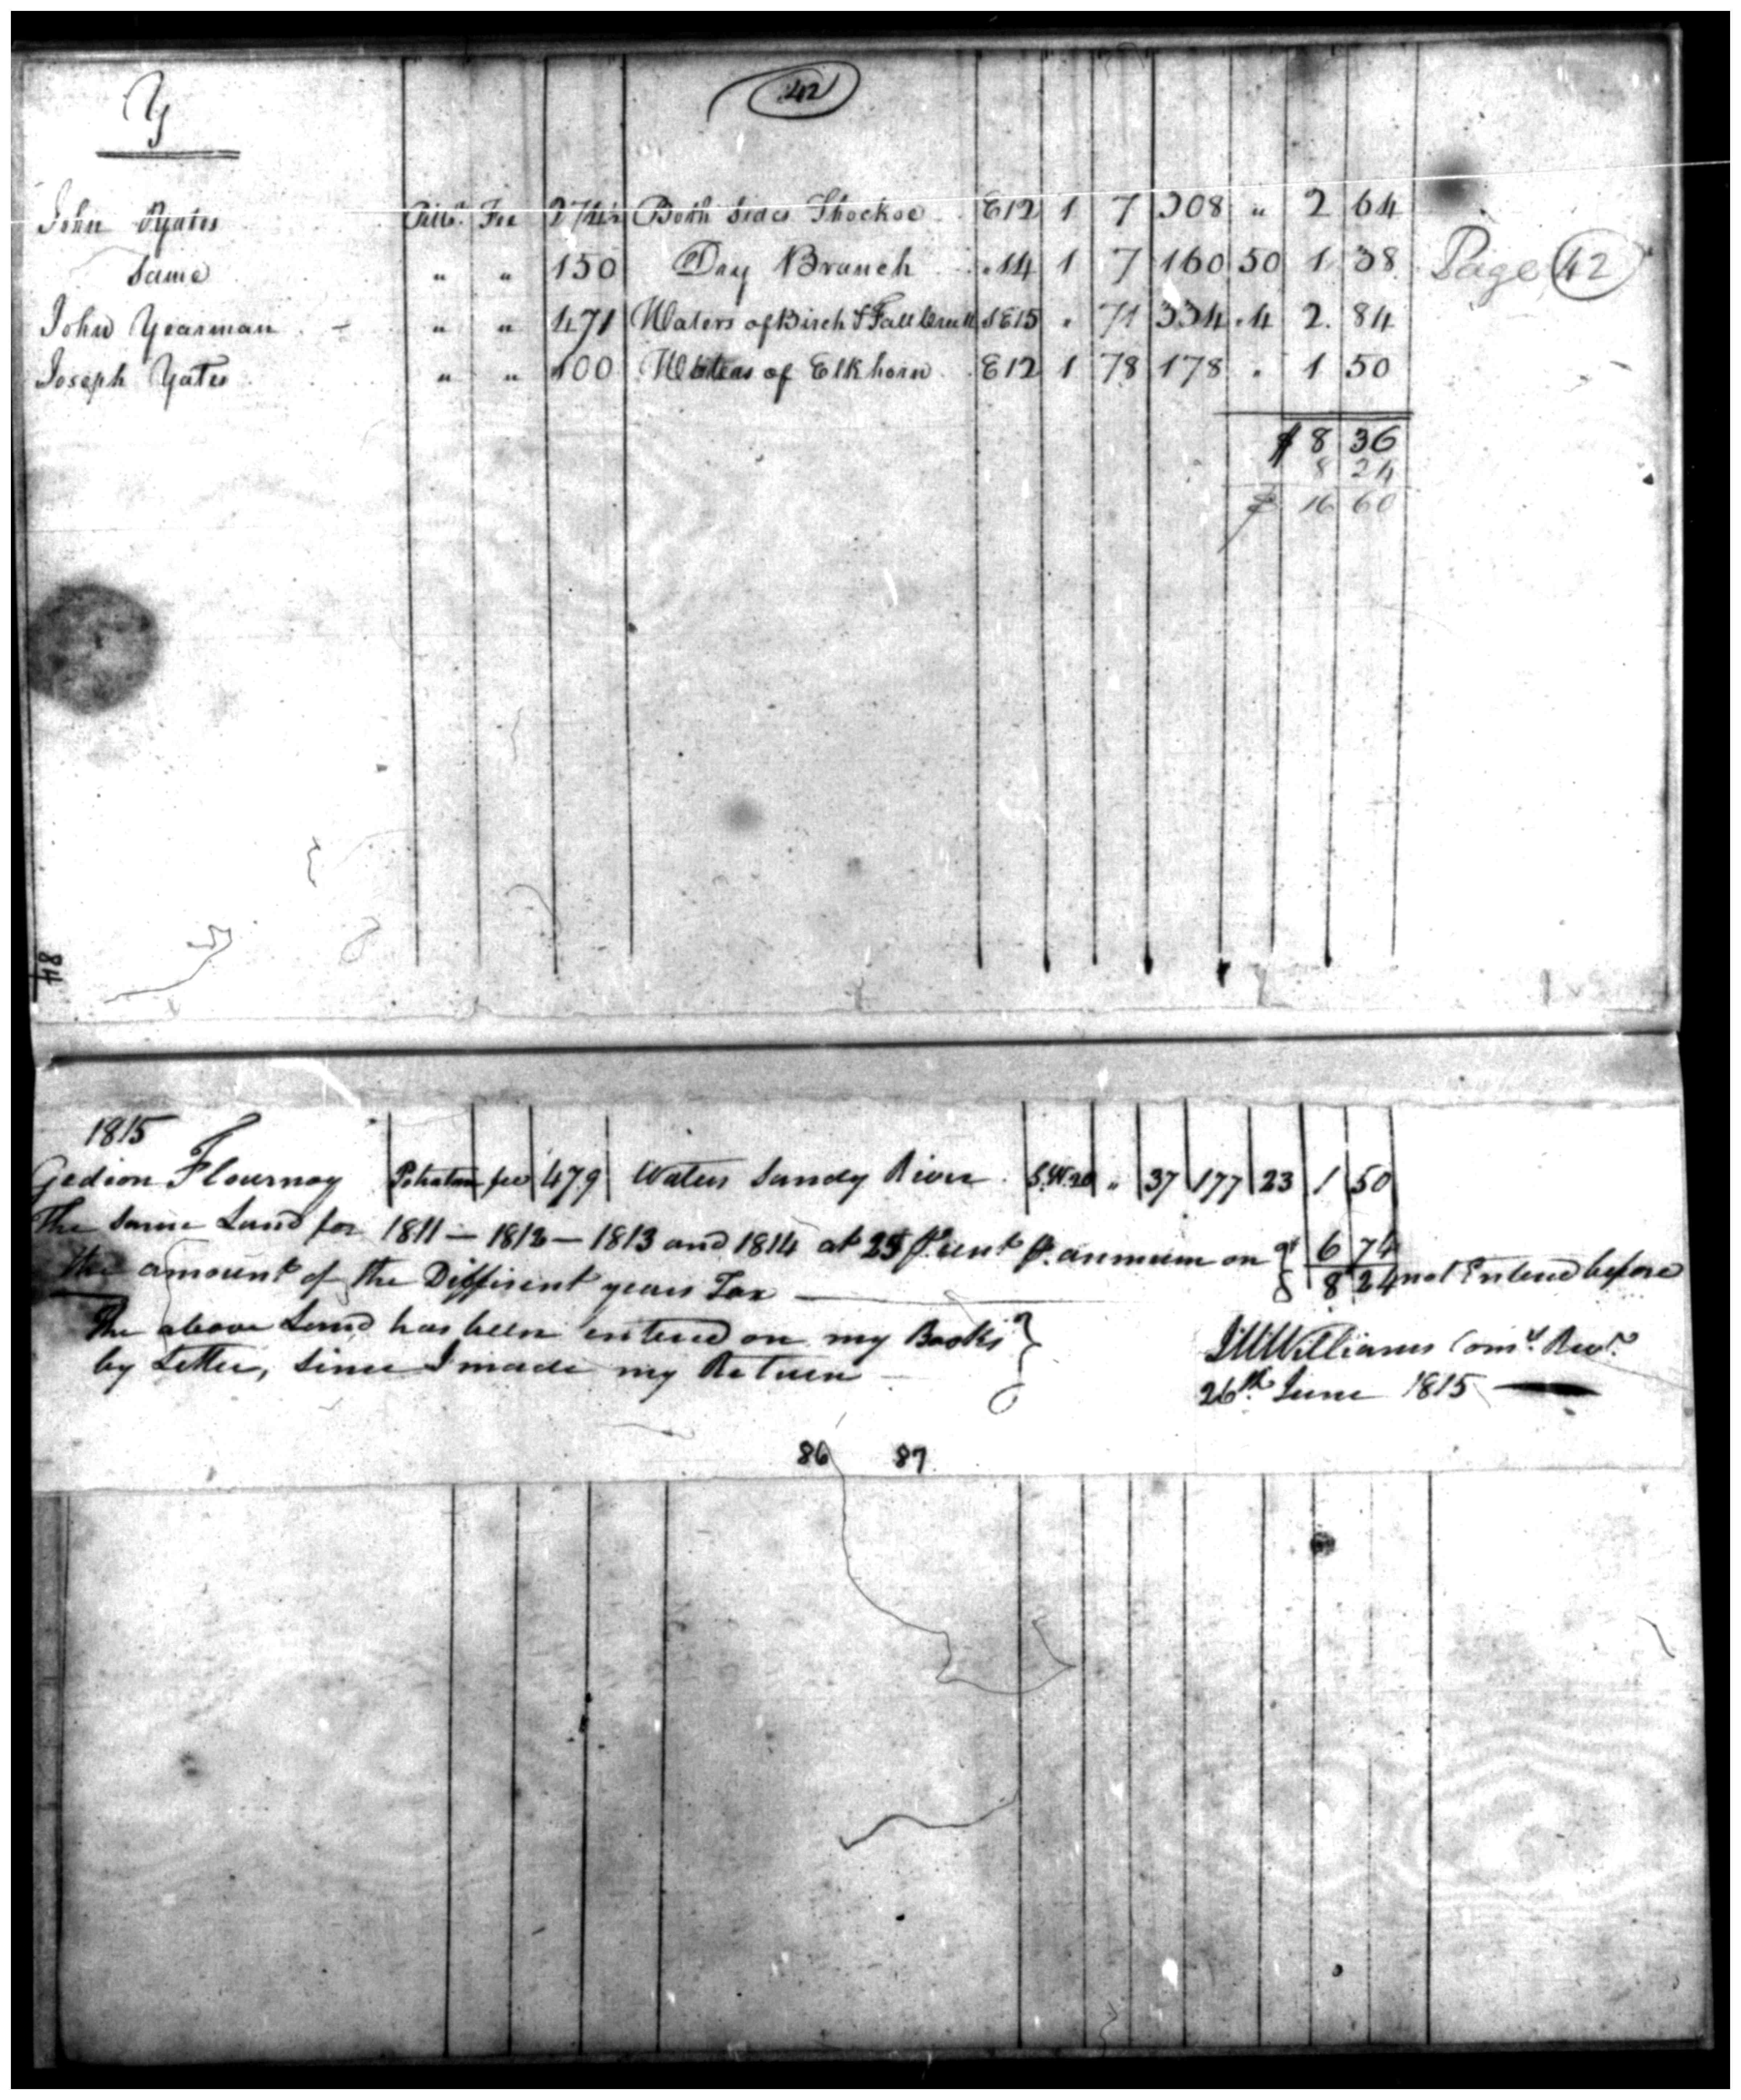 Y
42
John Yates Pitts. Fee 274½ Both Sides Shockoe E 12 1 7 308 " 2 64
Same " " 150 Dry Branch " 14 1 7 160 50 1 38
Page 42
John Yearman " " 471 Waters of Birch & Fall Creek S E 15 . 71 334 . 4 2. 84
Joseph Yates " " 100 Waters of Elkhorn E 12 1 78 178 . 1 50
$ 8 36
8 24
$ 16 60
84
1815
Gedion Flournoy Pohatan fee 479 Waters Sandy River S.W. 20 " 37 177 23 1 50
The Same Land for 1811 — 1812 — 1813 and 1814 at 25 pr. cent pr. annum on 6 74
the amount of the Diffirent years Tax — 8 24 not Entered before
The above Land has been entered on my Books
by Letter, Since I made my Return —
Williams Comr. Revn.
26th June 1815 —
86 87